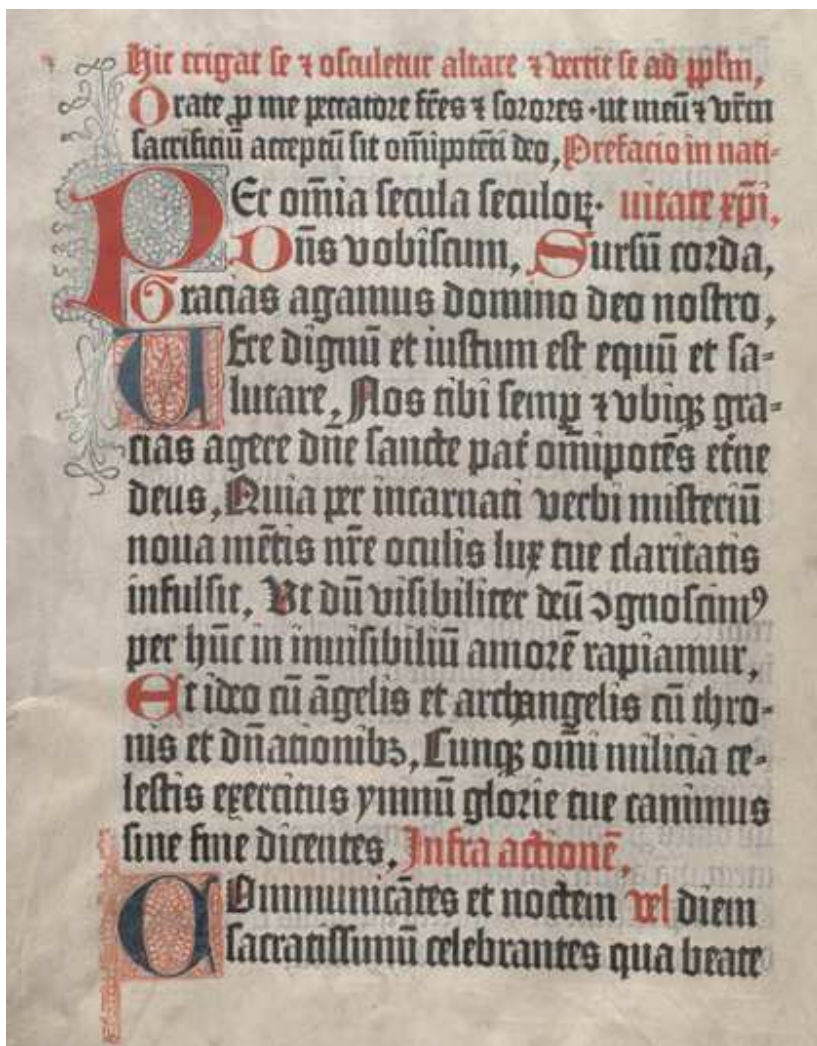 Hic erigat se ⁊ osculetur altare ⁊ vertit se ad pp̄lm,
Orate ꝓ me peccatore fr̄es ⁊ sorores · ut meū ⁊ vr̄m
sacrificiū acceptū sit om̄ipotēti deo, Prefacio in nati-
PEr om̄ia secula seculoꝝ· uitate xp̄i,
Dn̄s vobiscum, Sursū corda,
Gracias agamus domino deo nostro,
UEre dignū et iustum est equū et sa-
lutare, Nos tibi semꝑ ⁊ vbiqꝫ gra-
cias agere dn̄e sancte pat̄ om̄ipotēs et̄ne
deus, Quia per incarnati verbi misteriū
noua mētis nr̄e oculis lux tue claritatis
infulsit, Ut dū visibiliter deū ↄgnoscimꝰ
per hūc in inuisibiliū amorē rapiamur,
Et ideo cū āgelis et archangelis cū thro-
nis et dn̄ationibꝫ, Cunqꝫ om̄i milicia ce-
lestis exercitus ymnū glorie tue canimus
sine fine dicentes, Infra actionē,
COmmunicātes et noctem vel diem
sacratissimū celebrantes qua beate